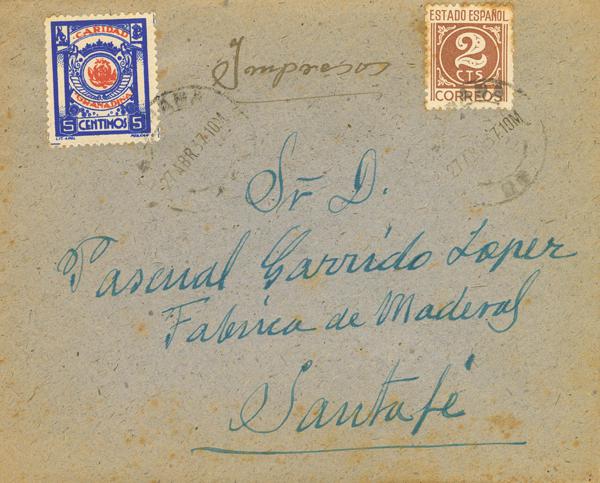 CARIDAD
GRANADINA
5 CENTIMOS 5
Impresos
ESTADO ESPAÑOL
2
CTS
CORREOS
27 ABR 37·10M
Sr D.
Pascual Garrido Loper
Fabrica de Maderas
Santafé